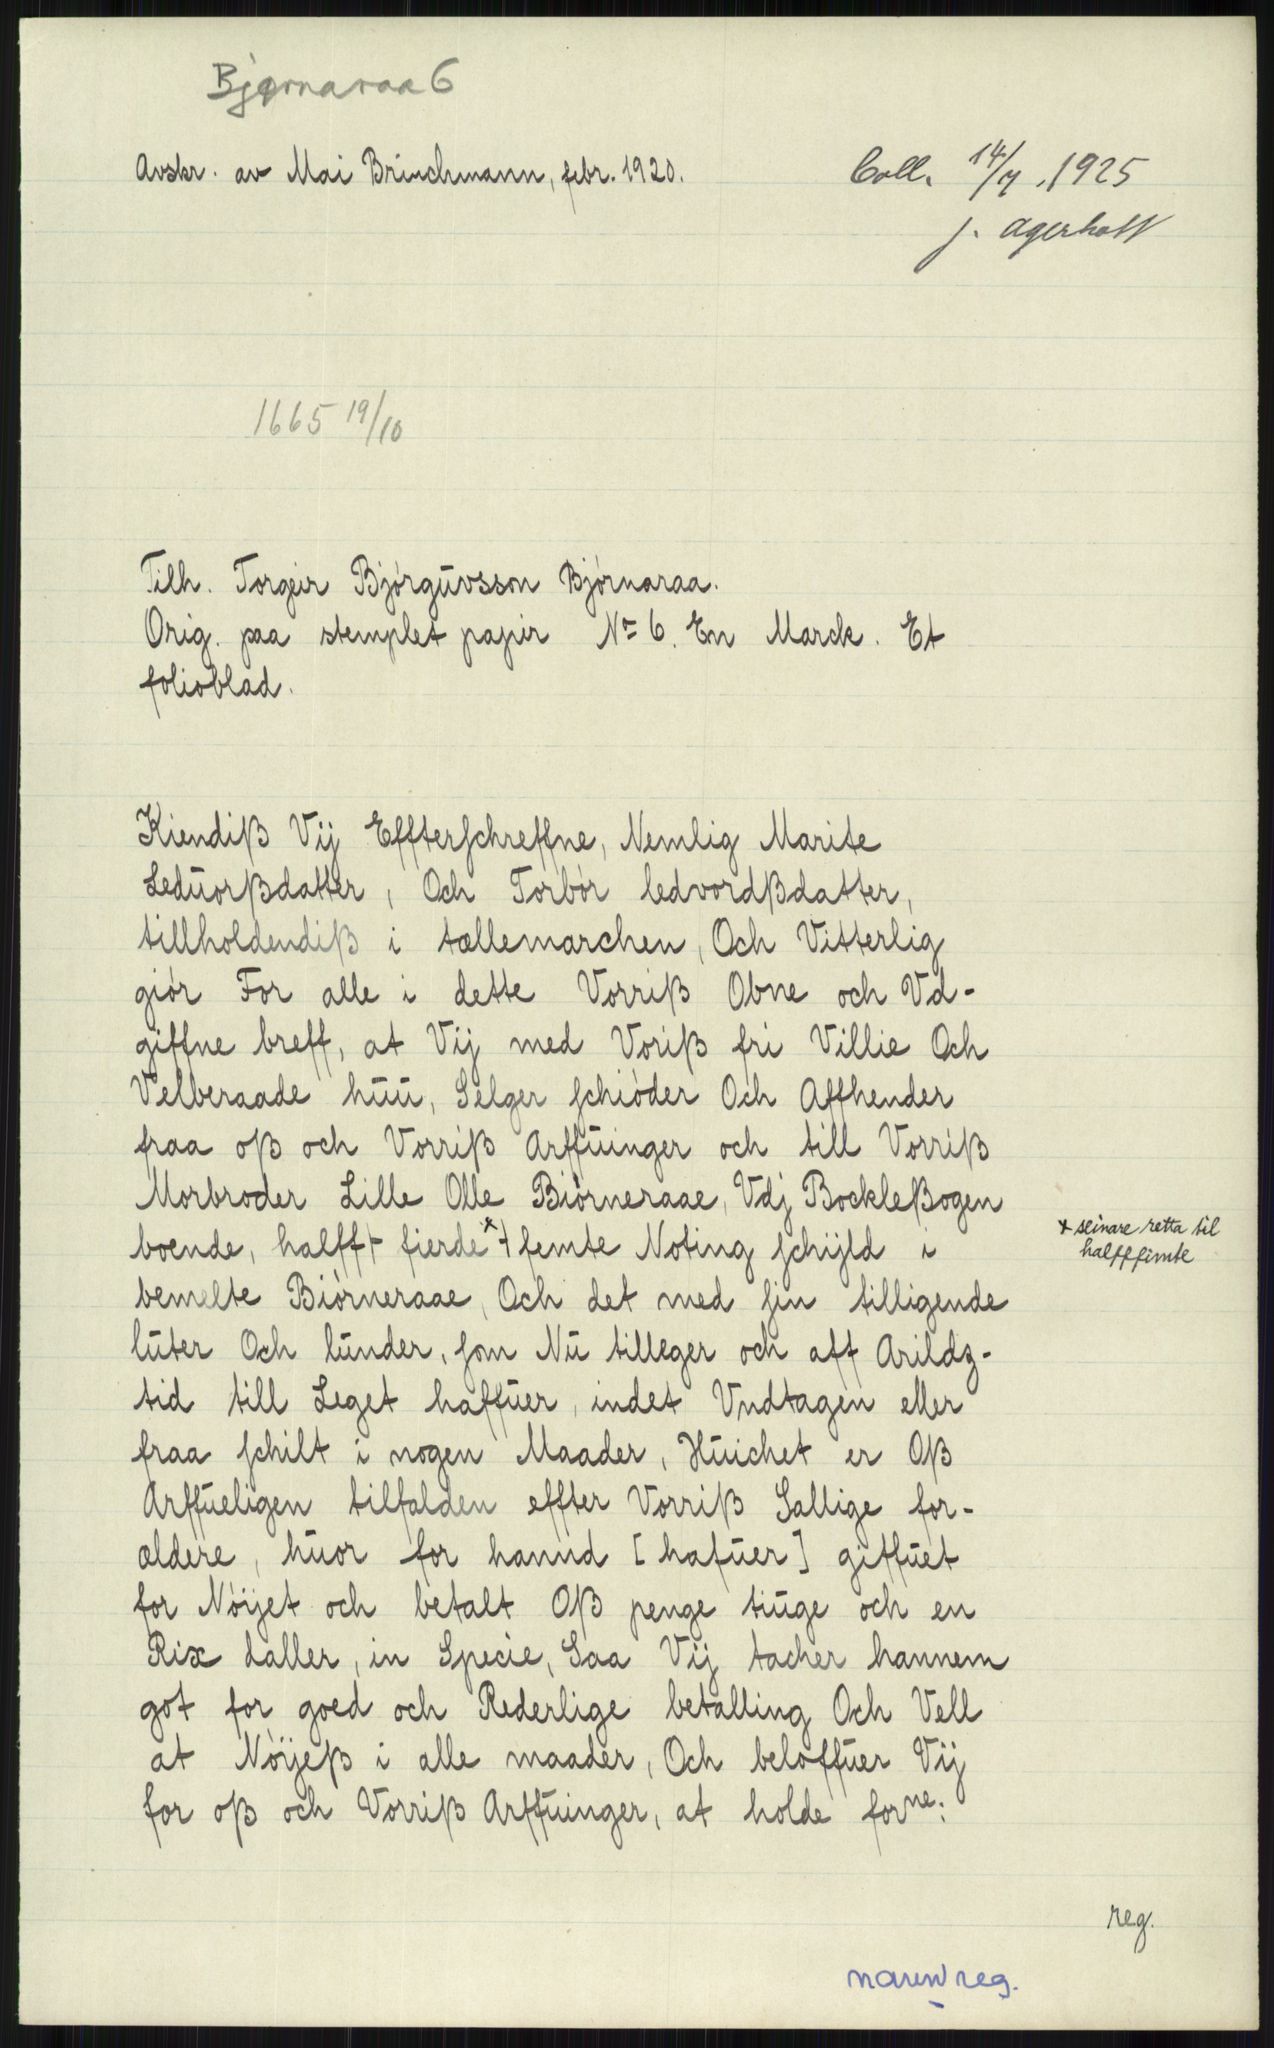 Bjørnaraa 6
Avskr. av Mai Brinchmann, febr. 1920.
Coll. 14/7. 1925
J. Agerholt
1665 19/10
Tilh. Torgeir Bjórgūvsson Bjórnaraa.
Orig. paa stemplet papir No 6. En Marck. Et
folioblad.
Kiendiß Vij Effterschreffne, Nemlig Marite
Ledūorßdatter, Och Torbór ledvordßdatter,
tillholdendiß i tællemarchen, Och Vitterlig
giór For alle i dette Vorriß Obne och Vd-
giffne breff, at Vij med Voriß fri Villie Och
Velberaade hūū, Selger schióder Och Affhender
fraa oß och Vorriß Arffūinger och till Vorriß
Morbroder Lille Olle Biórneraae, Vdj Bockleßogen
boende, halfft fierde x + femte Noting schijld i
x seinare retta til
halfffimte
bemelte Biórneraae, Och det med sin tilligende
lūter Och lūnder, som Nū tilleger och aff Arildz-
tid till Leget haffūer, indet Vndtagen eller
fraa schilt i nogen Maader, Hūichet er Oß
Arffūeligen tilfalden effter Vorriß Sallige for-
ældere, hūor for hannd [hafūer] giffūet
for Nóijet och betalt Oß penge tiūge och en
Rix daller, in Specie, Saa Vij tacher hannem
got for goed och Rederlige betalling Och Vell
at Nóijeß i alle maader, Och beloffūer Vij
for oß och Vorriß Arffūinger, at holde forne:
reg.
navnreg.